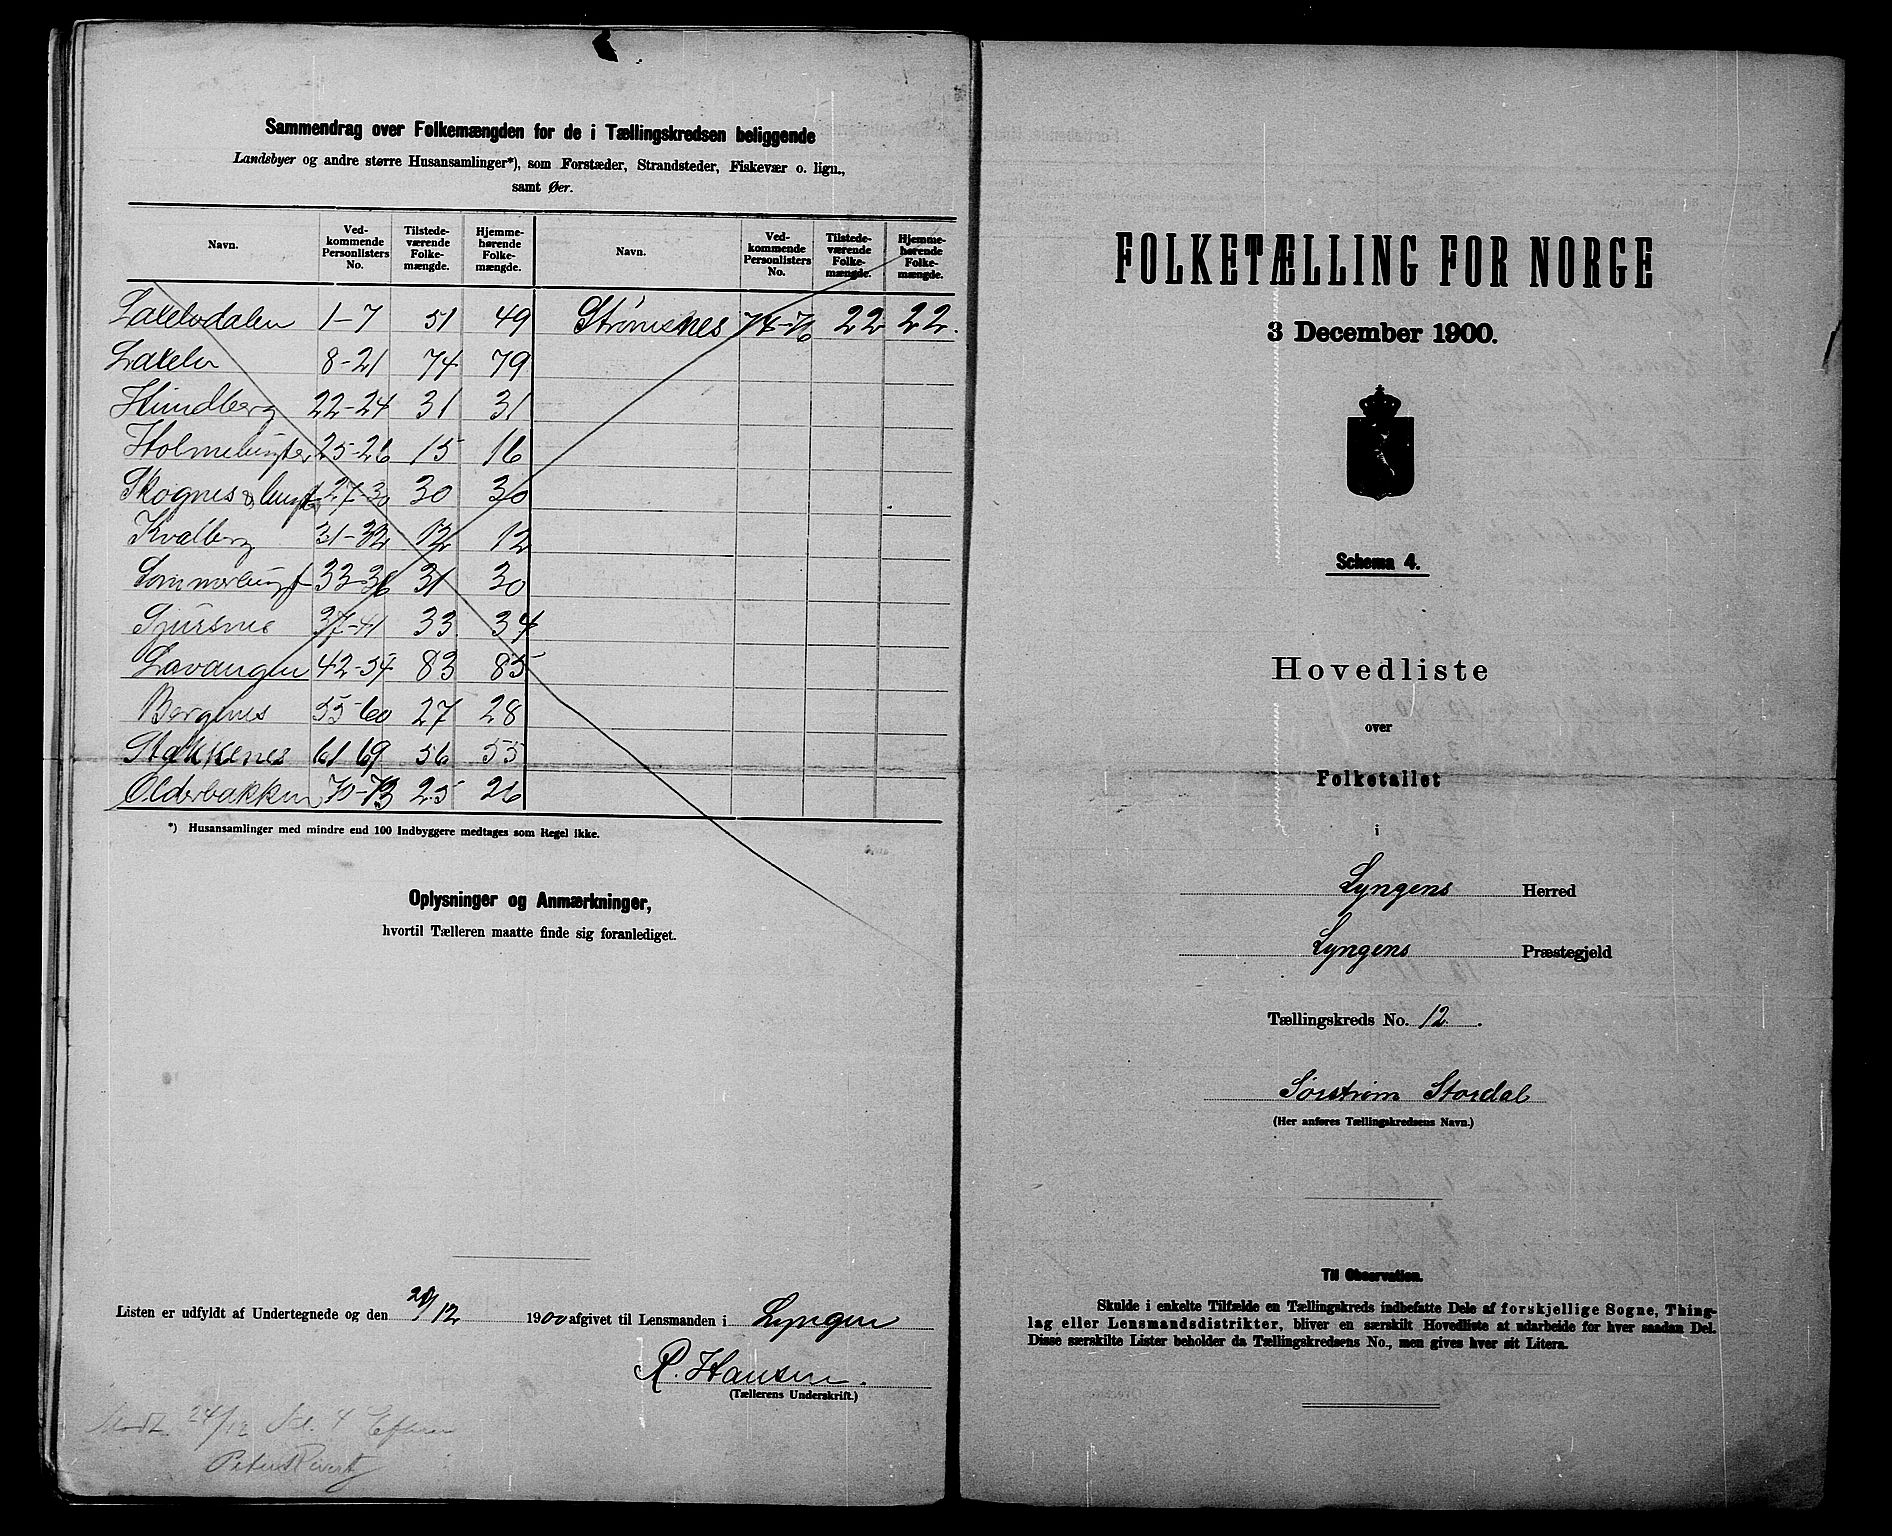 Sammendrag over Folkemængden for de i Tællingskredsen beliggende
Landsbyer og andre større Husansamlinger*), som Forstæder, Strandsteder, Fiskevær o. lign.,
samt Øer.
Navn. Vedkommende Personlisters No. Tilstedeværende Folkemængde. Hjemmehørende Folkemængde. Navn. Vedkommende Personlisters No. Tilstedeværende Folkemængde. Hjemmehørende Folkemængde.
Lakelvdalen 1-7 51 49 Strømsnes 74-76 22 22.
Lakelv 8-21 74 79
Hundberg 22-24 31 31
Holmebugten 25-26 15 16
Skognes & bugt 27-30 30 30
Kvalberg 31-32 12 12
Sommerbugt 33-36 31 30
Sjursnes 37-41 33 34
Lavangen 42-54 83 85
Bergenes 55-60 27 28
Stakkenes 61-69 56 55
Olderbakken 70-73 25 26
*) Husansamlinger med mindre end 100 Indbyggere medtages som Regel ikke.
Oplysninger og Anmærkninger,
hvortil Tælleren maatte finde sig foranlediget.
Listen er udfyldt af Undertegnede og den 20/12 1900 afgivet til Lensmanden i Lyngen
R. Hansen.
(Tællerens Underskrift.)
Modt. 24/12 Kl. 4 Efterm
FOLKETÆLLING FOR NORGE
3 December 1900.
Schema 4.
Hovedliste
over
Folketallet
i
Lyngens Herred
Lyngens Præstegjeld
Tællingskreds No. 12.
Sørstrøm Stordal
(Her anføres Tællingskredsens Navn.)
Til Observation.
Skulde i enkelte Tilfælde en Tællingskreds indbefatte Dele af forskjellige Sogne, Thing-
lag eller Lensmandsdistrikter, bliver en særskilt Hovedliste at udarbeide for hver saadan Del.
Disse særskilte Lister beholder da Tællingskredsens No., men gives hver sit Litera.